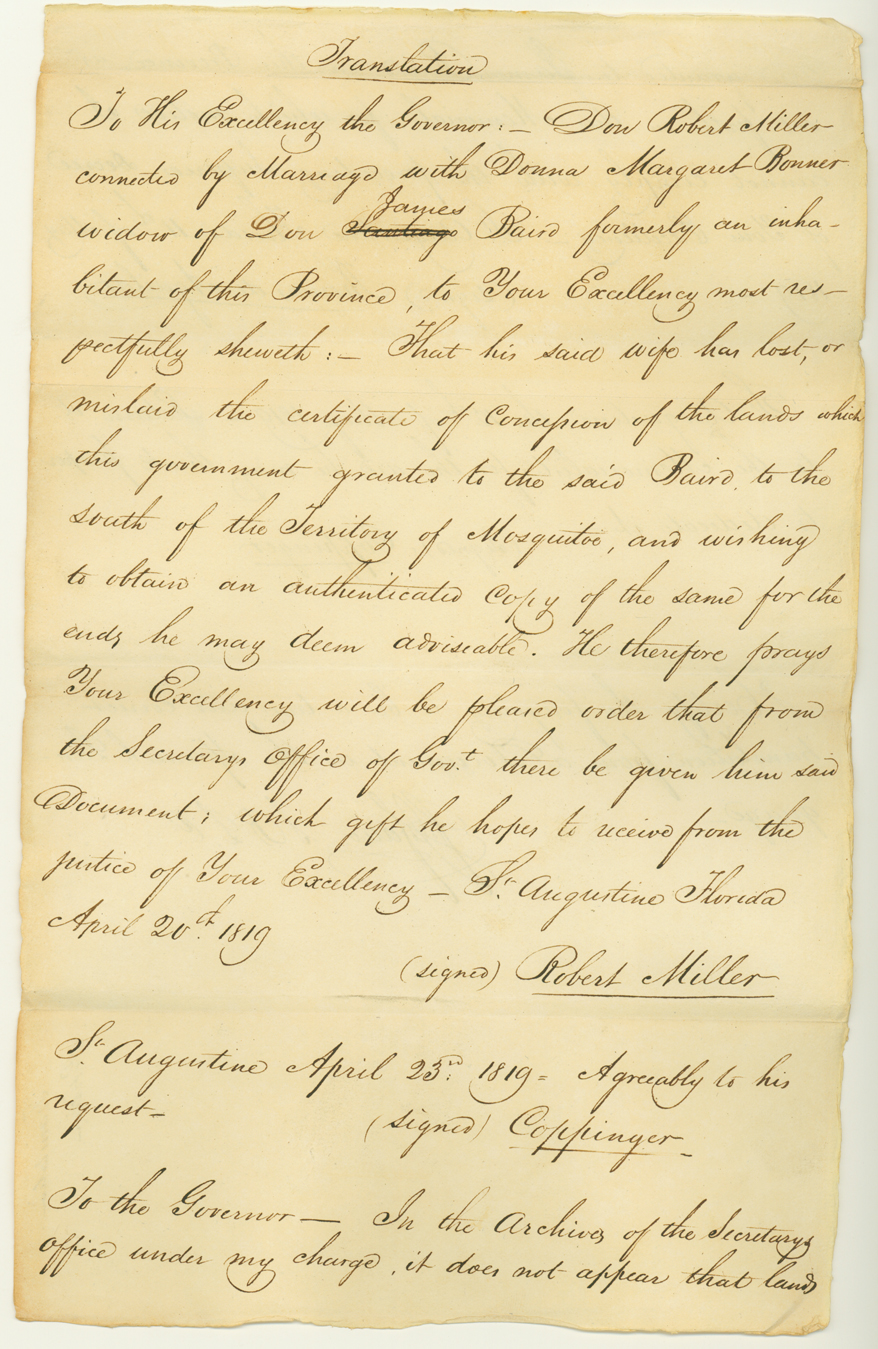 Translation
To His Excellency the Governor: — Don Robert Miller
connected by Marriage with Donna Margaret Bonner
James
widow of Don Santiago Baird formerly an inha-
bitant of this Province, to Your Excellency most res-
pectfully sheweth: — That his said wife has lost, or
mislaid the certificate of Concession of the lands which
this government granted to the said Baird, to the
south of the Territory of Mosquitoe, and wishing
to obtain an authenticated Copy of the same for the
ends he may deem adviseable. He therefore prays
Your Excellency will be pleased order that from
the Secretarys Office of Gov.t there be given him said
Document; which gift he hopes to receive from the
justice of Your Excellency — St. Augustine Florida
April 20th. 1819
(signed) Robert Miller
St. Augustine April 23rd. 1819 = Agreeably to his
request —
(signed) Coppinger —
To the Governor — In the Archives of the Secretarys
office under my charge, it does not appear that lands